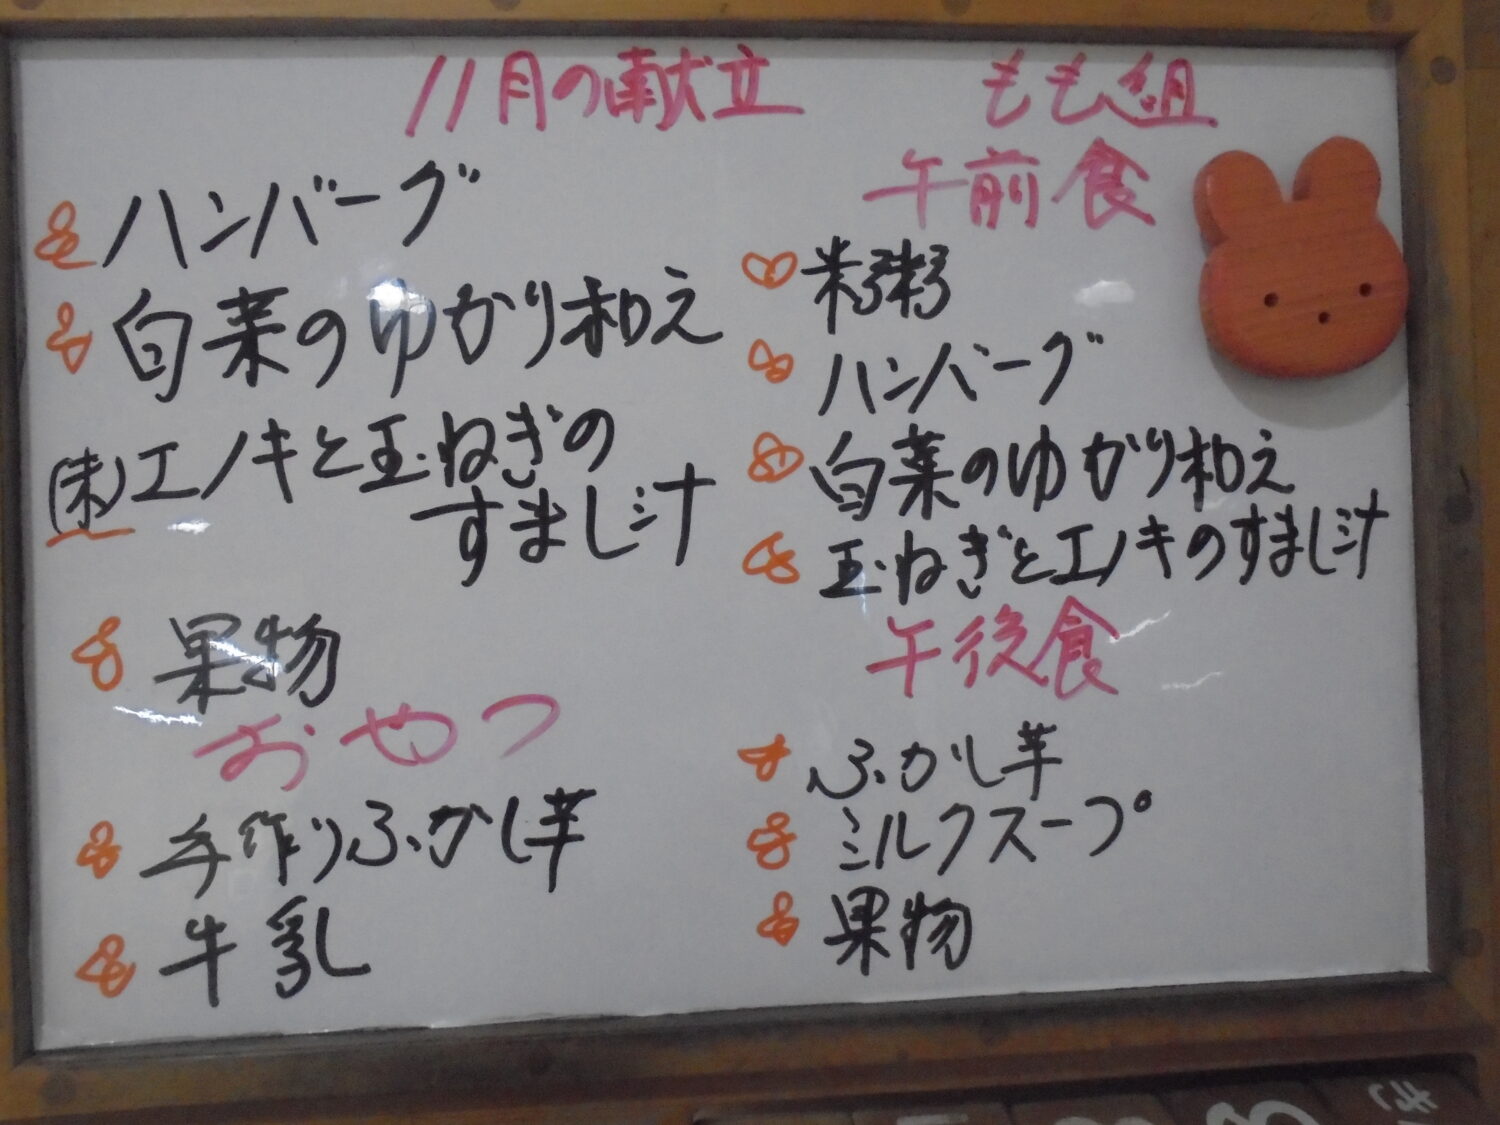 11月の献立
ハンバーグ
白菜のゆかり和え
エノキと玉ねぎの
すまし汁
果物
おやつ
手作りふかし芋
牛乳
もも組
午前食
米粥
ハンバーグ
白菜のゆかり和え
玉ねぎとエノキのすまし汁
午後食
ふかし芋
ミルクスープ
果物